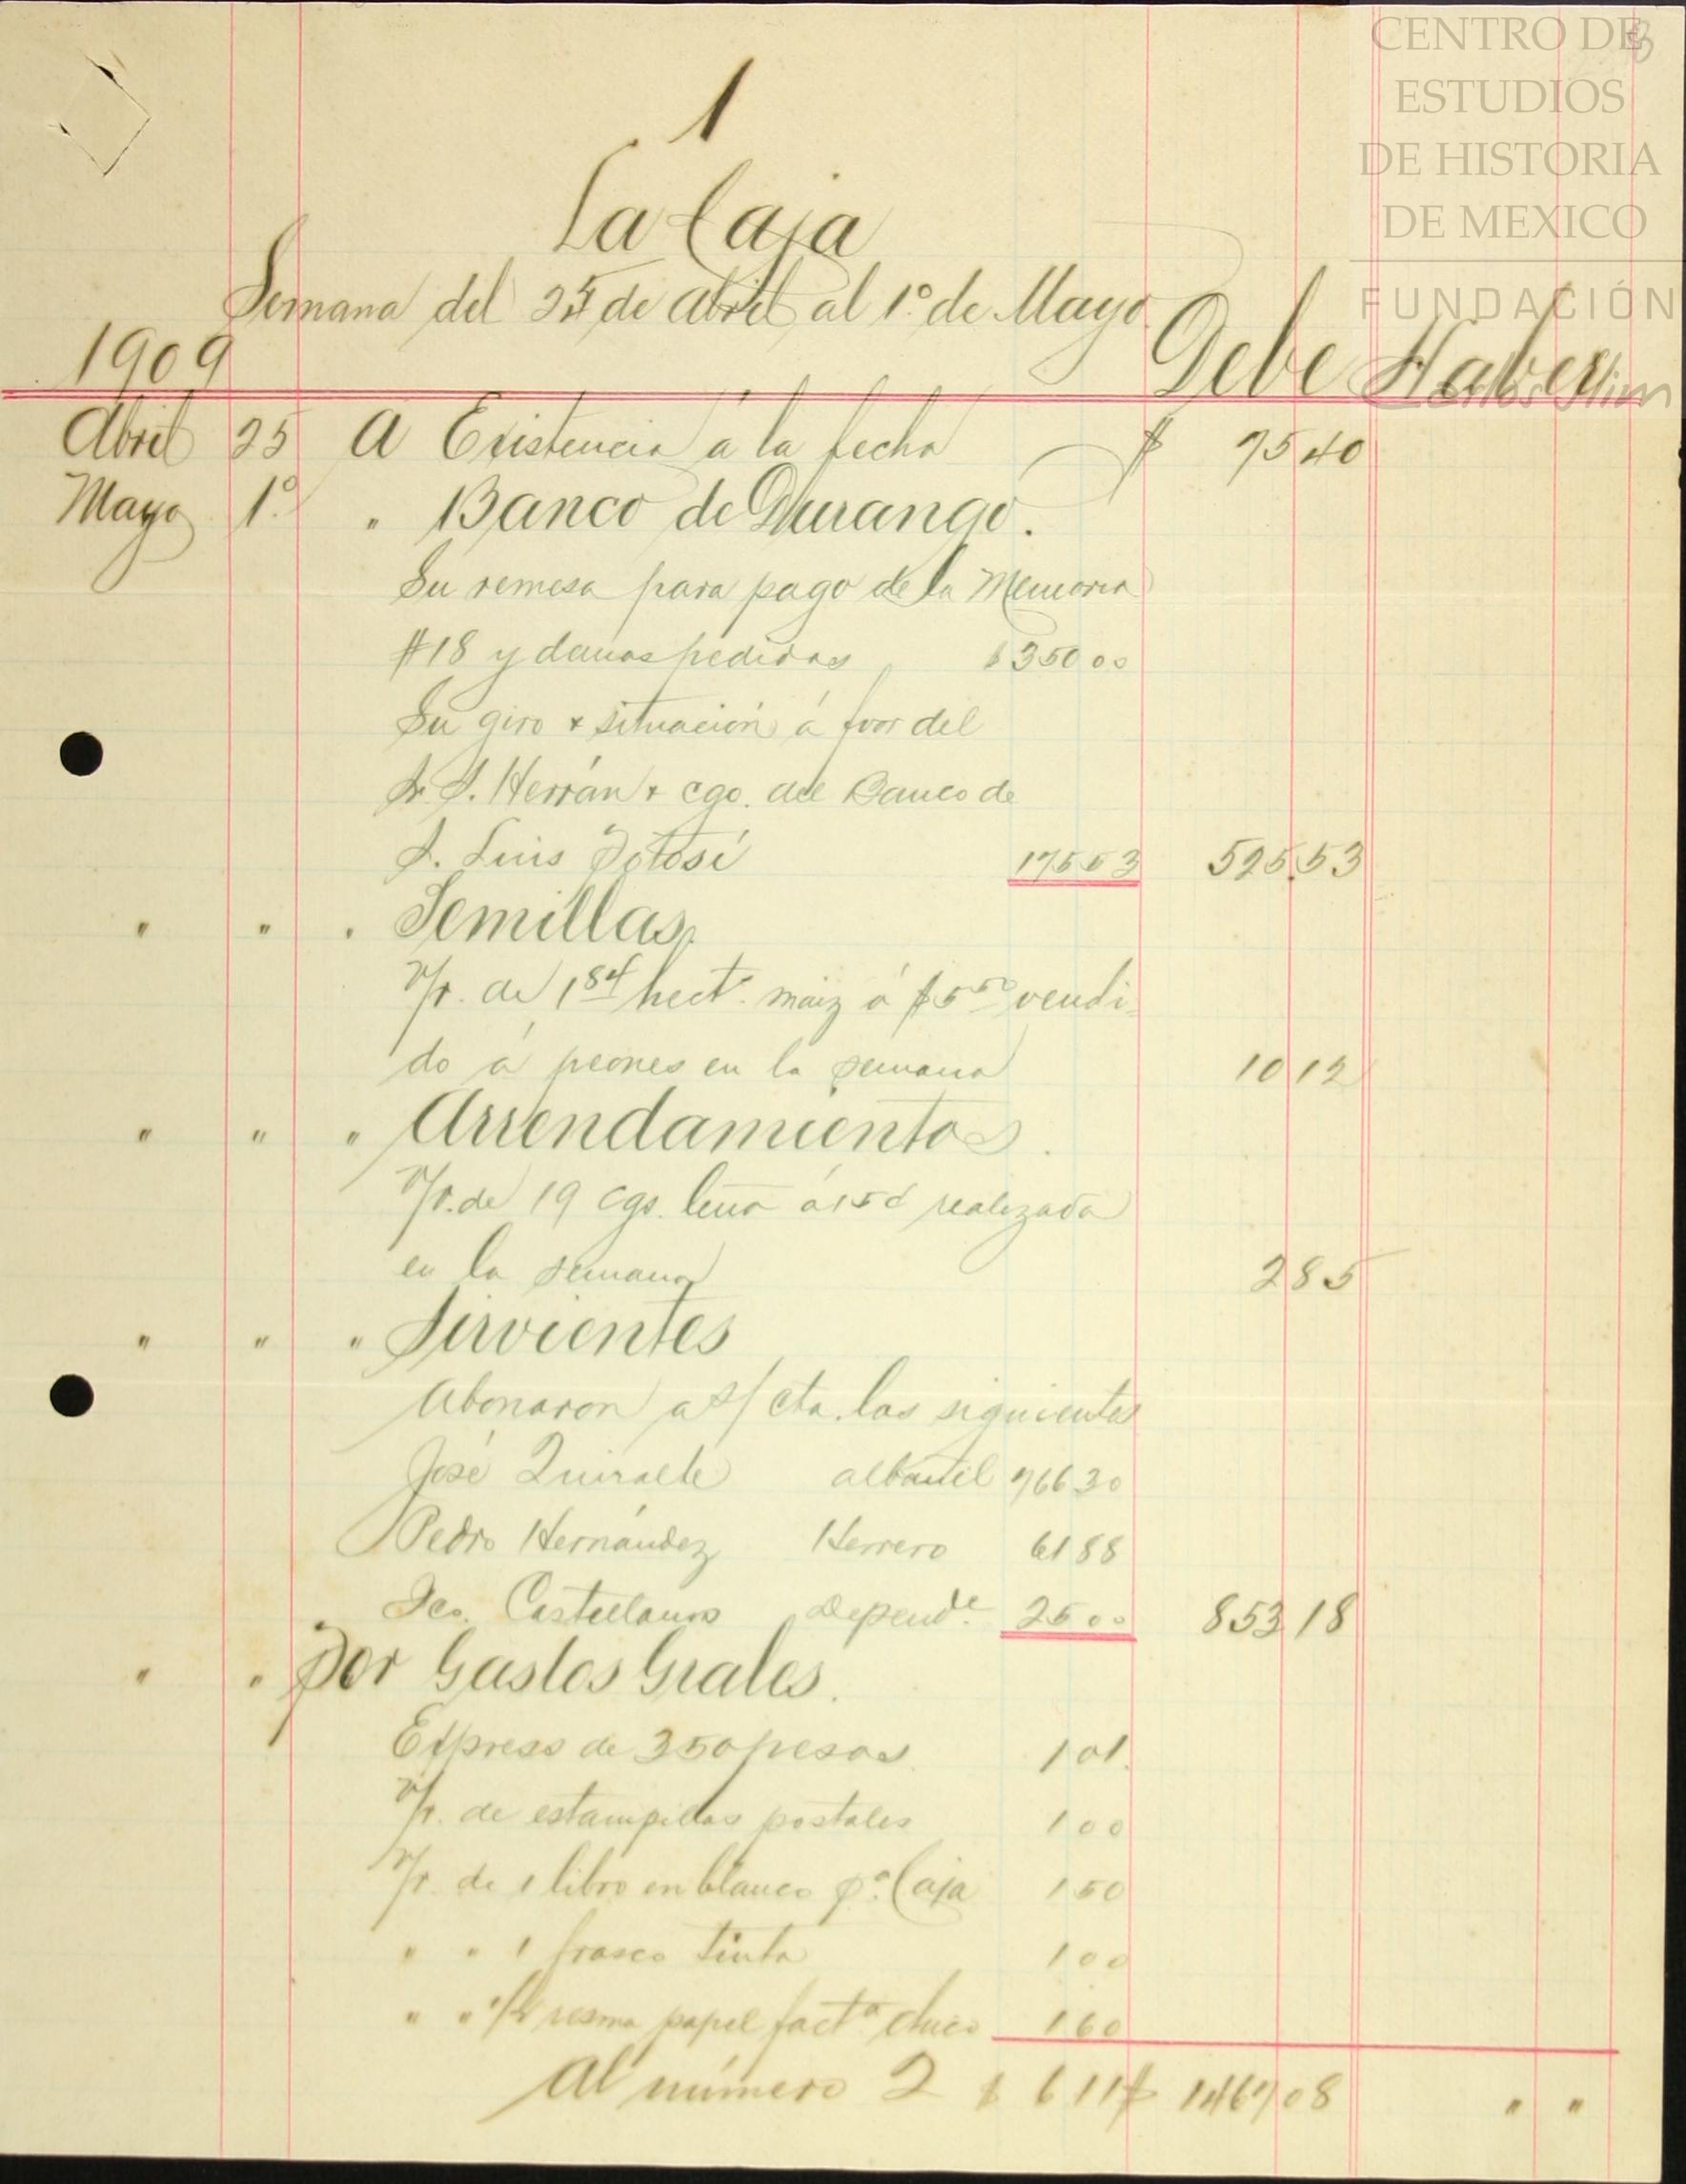 CENTRO DE
ESTUDIOS
DE HISTORIA
DE MEXICO
FUNDACIÓN
Carlos Slim
1
La Caja
Semana del 25 de Abril al 1º de Mayo
1909 Debe Haber
Abril 25 A Existencia á la fecha $ 75 40
Mayo 1º " Banco de Durango.
Su remesa para pago de la Memoria
#18 y demas pedidos $ 350 00
Su giro + situación á fvor del
Sr. S. Herrán + cgo. del Banco de
S. Luis Potosí 175 53 525 53
" " " Semillas
V/r. de 1 84 hect. maiz á $ 5 50 vendi-
do á peones en la semana 10 12
" " " Arrendamientos.
V/r. de 19 cgs. leña á 15 ¢ realizada
en la semana 2 85
" " " Sirvientes
Abonaron a s/ cta. los siguientes
José Quiralte albañil 766 30
Pedro Hernández Herrero 61 88
Fco. Castellanos Depend.e 25 00 853 18
" " Por Gastos Grales.
Express de 350 pesos 1 01
V/r. de estampillas postales 1 00
V/r. de 1 libro en blanco pª Caja 1 50
" " 1 frasco tinta 1 00
" " 1/2 resma papel factª chico 1 60
Al número 2 $ 6 11 $ 1467 08 " "